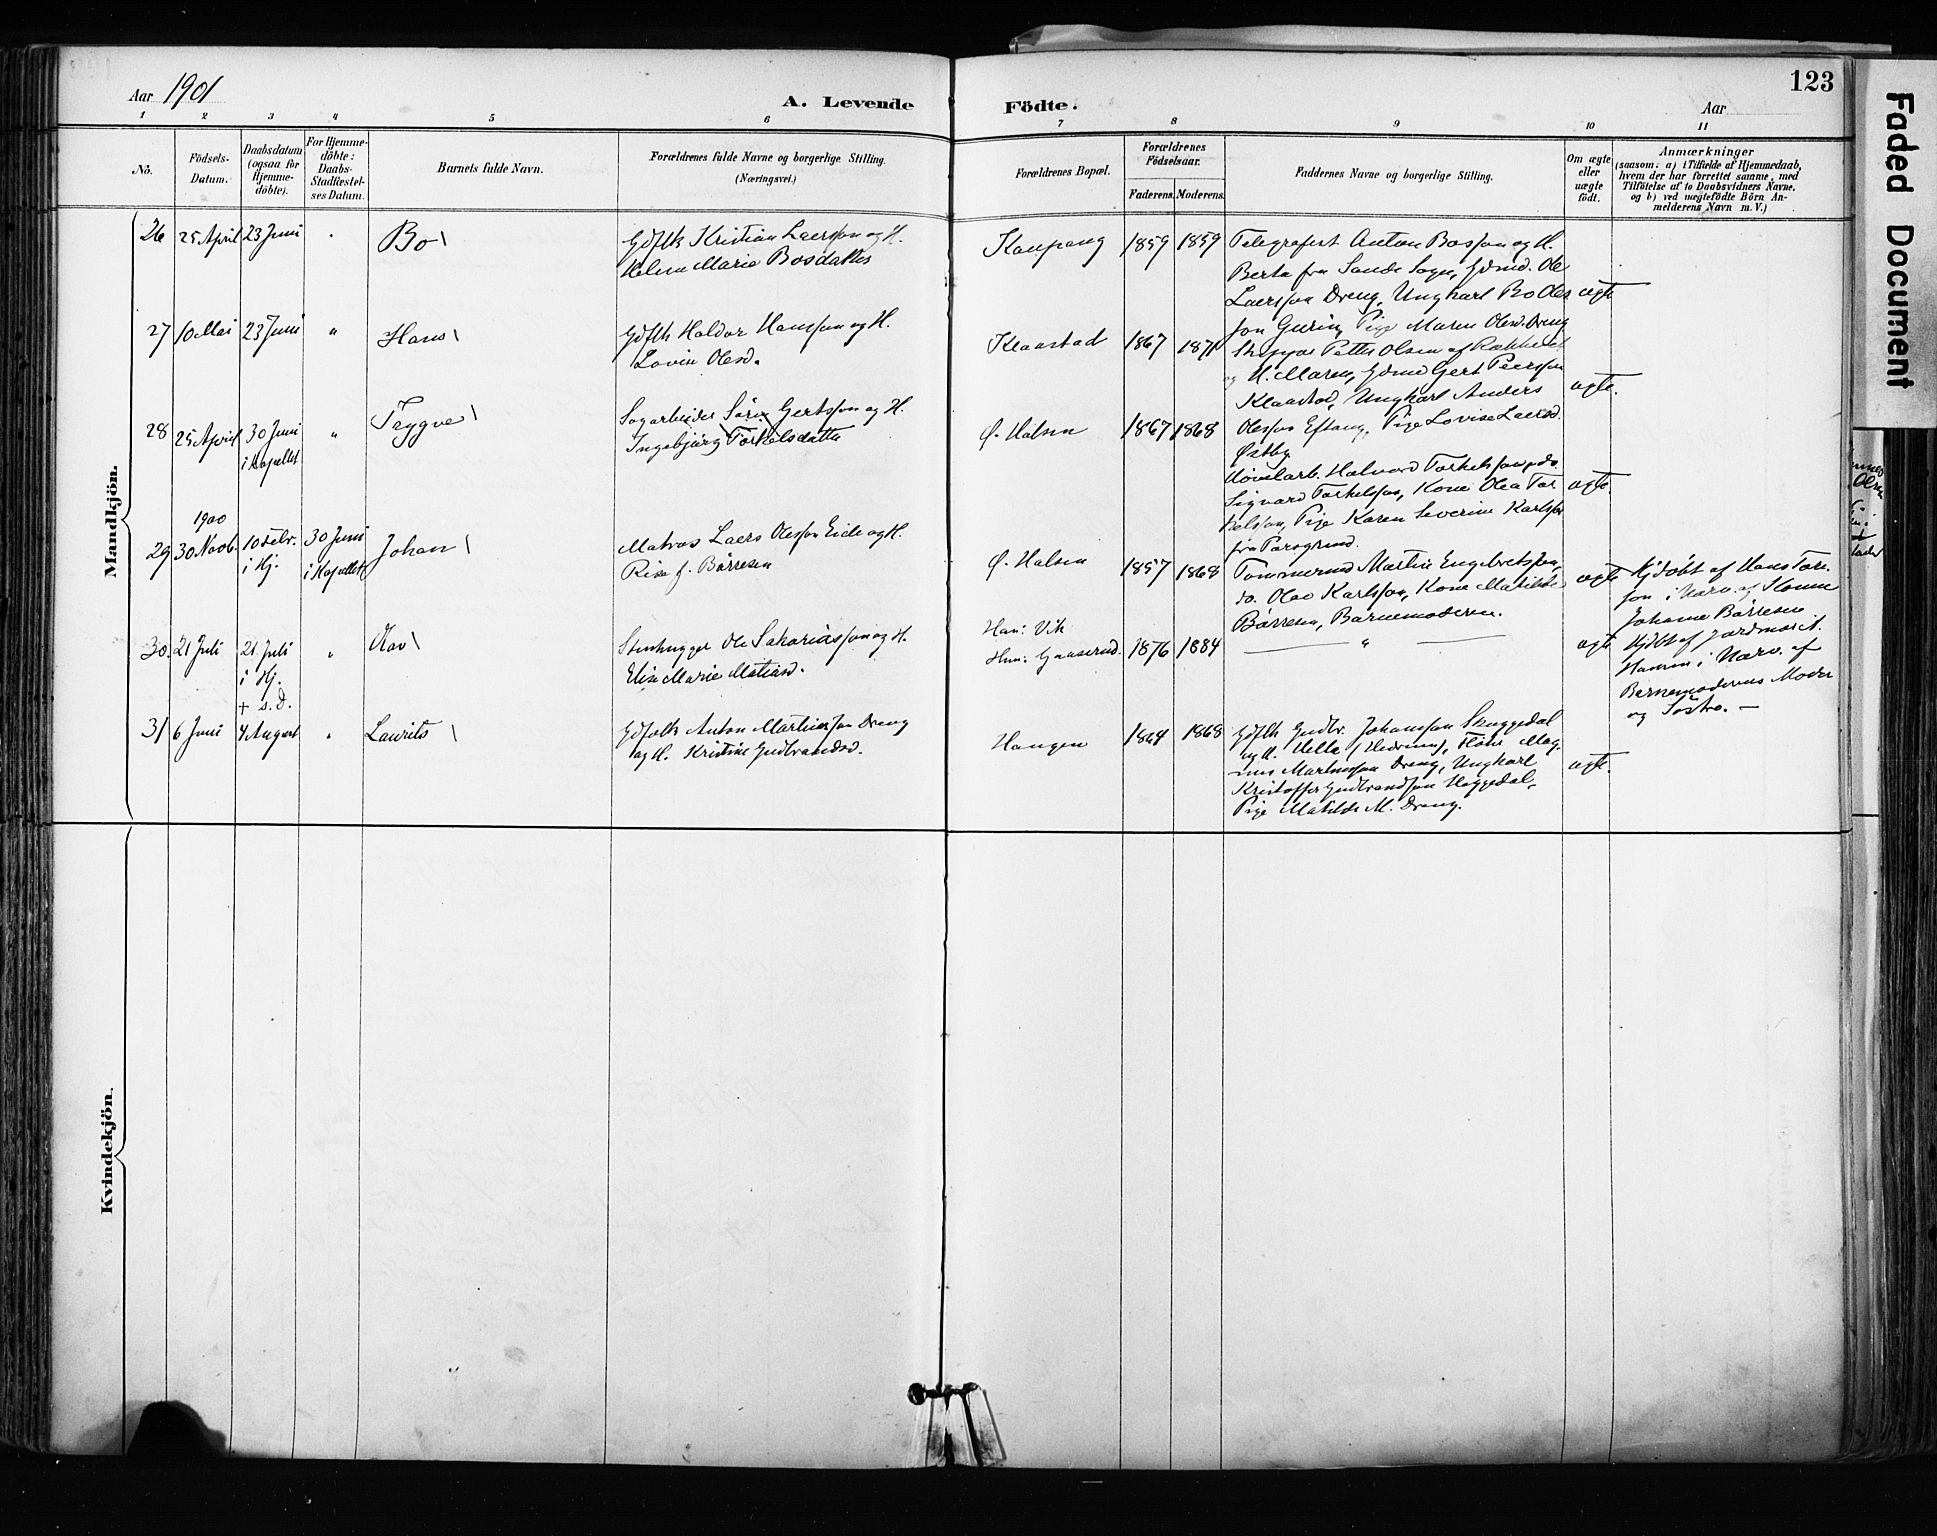 Aar 1901
A. Levende
Födte.
Aar
123
Faded Document
1 2 3 4 5 6 7 8 9 10 11
No.
Födsels-
Datum.
Daabsdatum
(ogsaa for
Hjemme-
döbte).
For Hjemme-
döbte:
Daabs-
Stadfæstel-
ses Datum.
Barnets fulde Navn.
Forældrenes fulde Navne og borgerlige Stilling.
(Næringsvei.)
Forældrenes Bopæl.
Forældrenes
Födselsaar.
Faderens. Moderens.
Faddernes Navne og borgerlige Stilling.
Om ægte
eller
uægte
födt.
Anmærkninger
(saasom: a) i Tilfælde af Hjemmedaab,
hvem der har forrettet samme, med
Tilföielse af to Daabsvidners Navne,
og b) ved uægtefödte Börn An-
melderens Navn m. V.)
Mandkjön.
26 25 April 23 Juni
Bo
Gdflk Kristian Laersson og H.
Helene Marie Bosdatter
Kaupang 1859 1859
Telegrafist Anton Bosson og H.
Berta fra Sande Sogn, Gdmd. Ole
Laersson Dreng, Ungkarl Bo Oles
son Gurin, Pige Maren Olesd. Dreng
ægte
27 10 Mai 23 Juni "
Hans
Gdflk Haldor Hansson og H.
Lovise Olesd.
Klaastad 1867 1871
Petter Olsen af
og H. Maren, Gdmd Gert Peersson
Klaastad, Ungkarl Anders
Olesson Eftang, Pige Lovise Laersd.
Østby
ægte.
28 25 April 30 Juni
i Kapellet "
Trygve
Sagarbeider Sörin Gertsson og H.
Ingebjörg Torkelsdatter
Ø. Halsen 1867 1868
Hövelarb. Halvard Torkelsson, do.
Sigvard Torkelsson, Kone Olea Tor
kelsson, Pige Karen Severine Karlsson
fra Porsgrund.
ægte.
29 1900
30 Novb. 10 Febr.
i Hj. 30 Juni
i Kapellet
Johan
Matros Laers Olesson Eide og H.
Risa f. Börresen
Ø. Halsen 1857 1868
Tömmermd Martin Engebretsson,
do. Olav Karlsson, Kone Matilde
Börresen, Barnemoderen.
ægte
Hjdöbt af Hans Tor.
son i Nærv. af Konne
Johanne Börresen
30. 21 Juli 21 Juli
i Hj.
+ s. D. "
Olav
Stenhugger Ole Sakariasson og H.
Elise Marie Matiasd.
Han: Vik
Hun: Gaaserud. 1876 1884
"
ægte
Hjdöbt af Jordmor A.
Hansen i Nærv. af
Barnemoderens Moder
og Söster. —
31 6 Juni 4 August "
Laurits
Gdfolk Anton Martinsson Dreng
og H. Kristine Gudbrandsd.
Haugen 1864 1868
Gdflk Gudbr. Johansson Skuggedal
og H. Helle (Hedrum), Mag.
nus Martinsson Dreng, Ungkarl
Kristoffer Gudbrandsson Skuggedal,
Pige Matilde M. Dreng.
ægte.
Kvindekjön.